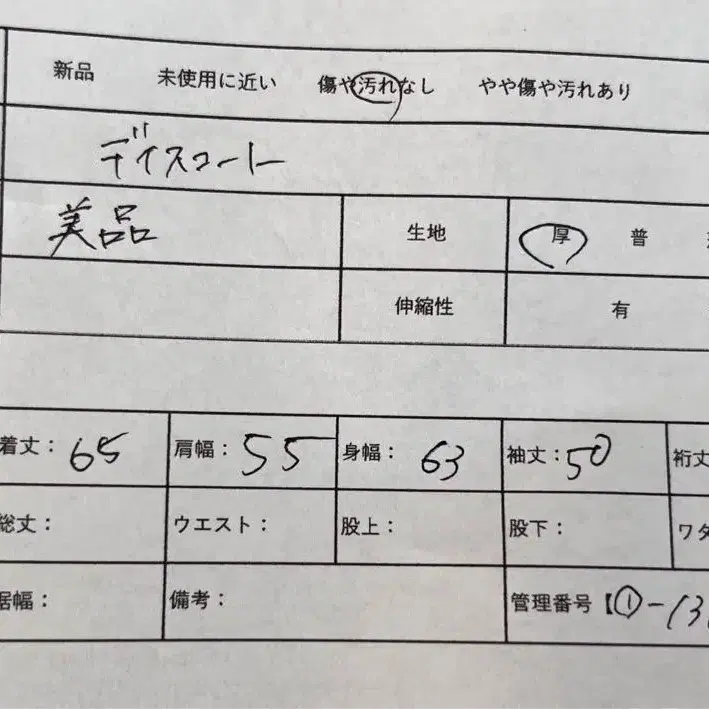 新品 未使用に近い 傷や汚れなし やや傷や汚れあり
ディスコート
美品 生地 厚 普
伸縮性 有
着丈: 65 肩幅: 55 身幅: 63 袖丈: 50 裄丈
総丈: ウエスト: 股上: 股下: ワタ
裾幅: 備考: 管理番号【①-13